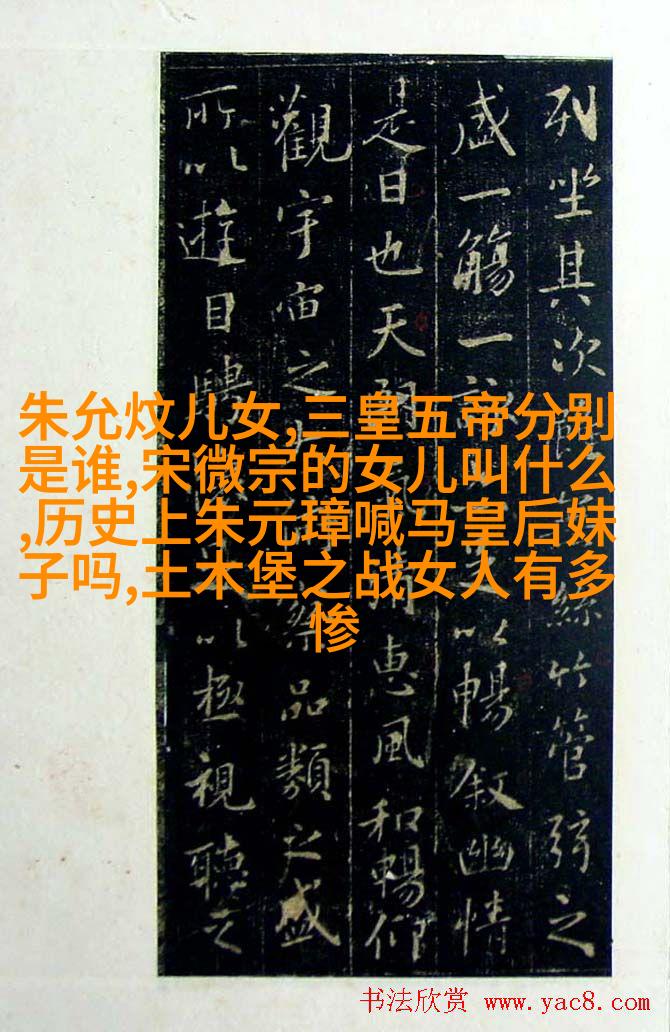 朱允炆儿女,三皇五帝分别
是谁,宋微宗的女儿叫什么
,历史上朱元璋喊马皇后妹
子吗,土木堡之战女人有多
惨
列坐其次絲竹管弦之
盛一觴一以暢叙幽情
是日也天惠風和暢仰
觀宇宙之品類之盛
所以遊目騁以極視聽之
书法欣赏 www.yac8.com